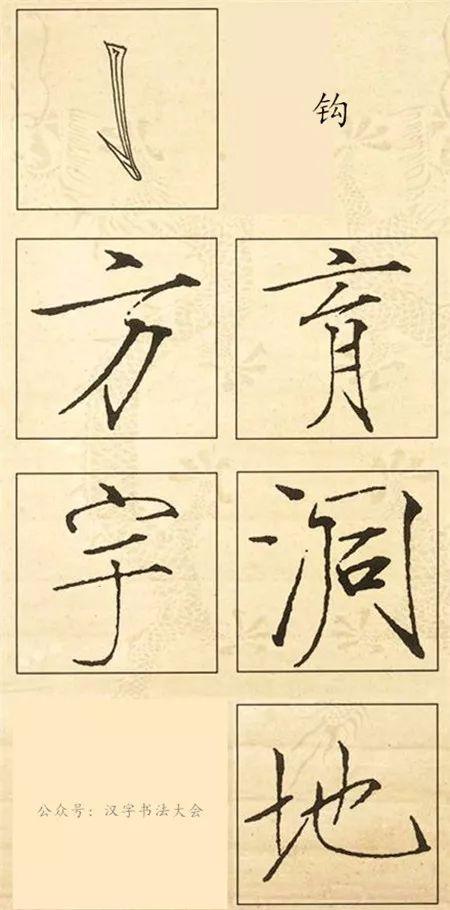 钩
方 育
宇 洞
公众号：汉字书法大会
地